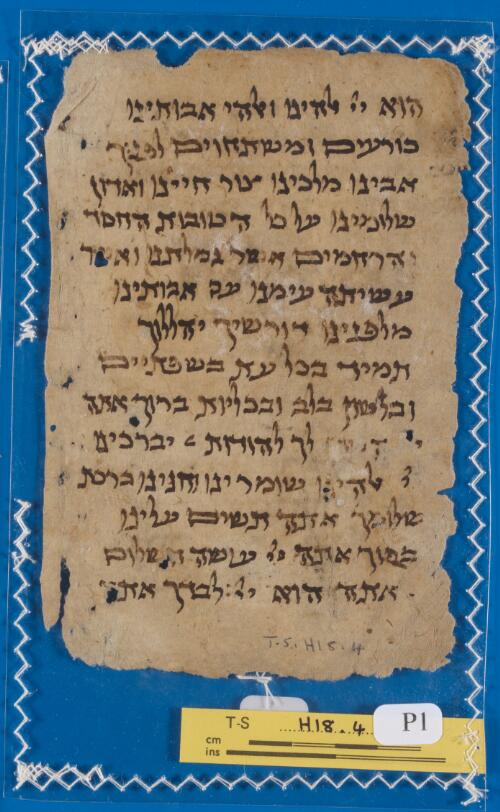 הוא ייי אלהינו ואלהי אבותינו
כורעים ומשתחוים לפניך
אבינו מלכינו צור חיינו ואדון
שלומינו על כל הטובות החסד
והרחמים אשר גמלתנו ואשר
עשיתה עימנו עם אבותינו
מלפנינו דורשיך יהללך
תמיד בכל עת בשפתיים
ובלשון בלב ובכליות ברוך אתה
לך להודות יברכינו
אלהינו שומרינו וחנינו ברכת
שלומך אתה תשים עלינו
ברוך אתה ייי עושה השלום
אתה הוא ייי לבדך אתה
T-S. H18.4
T-S H18.4 P1
cm
ins